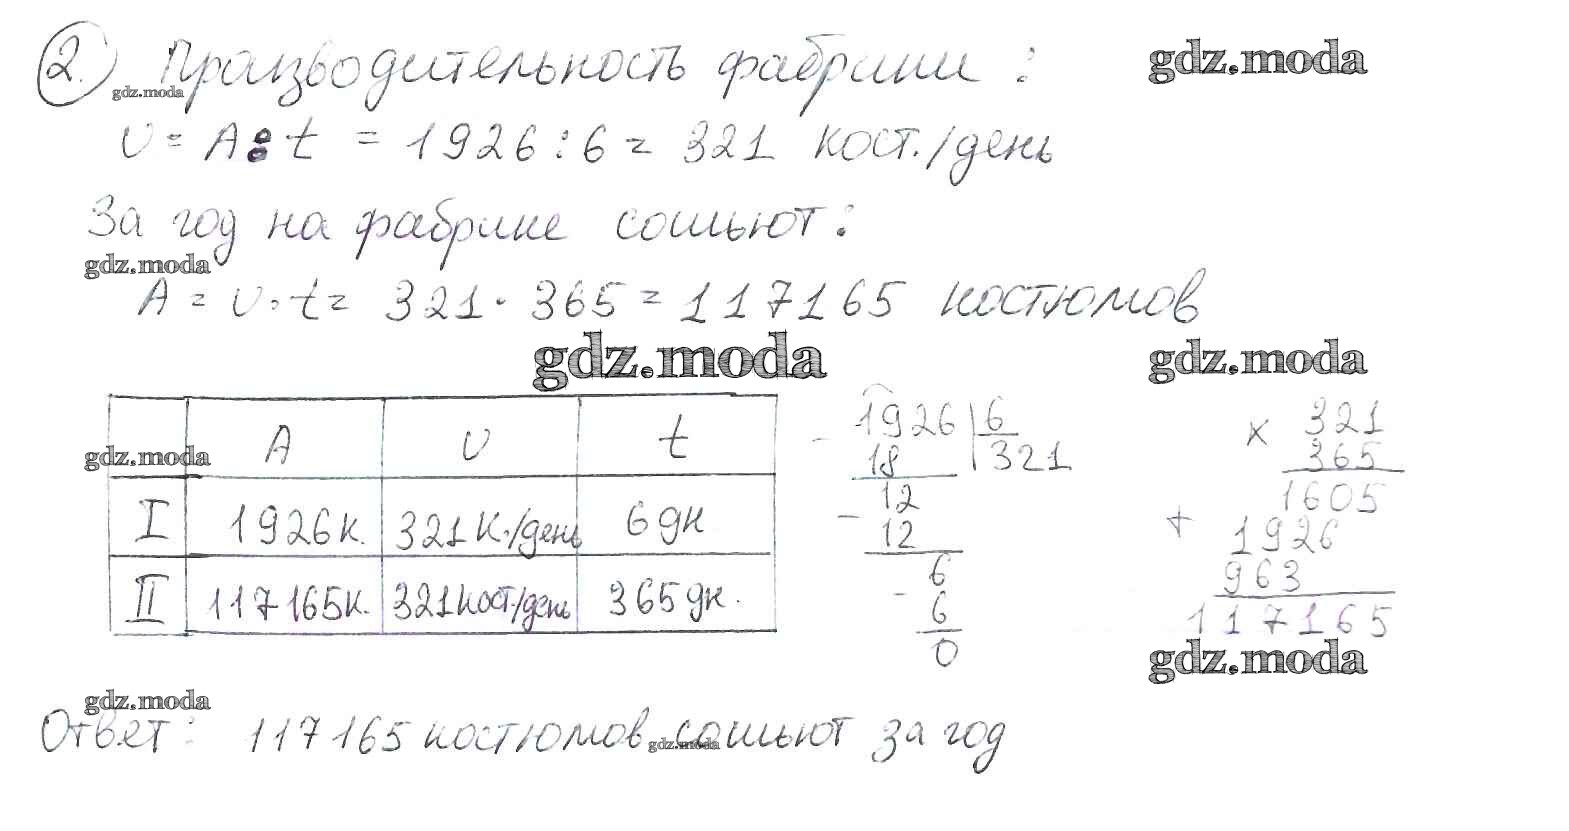 2. Производительность фабрики :
gdz.moda
gdz.moda
υ = A : t = 1926 : 6 = 321 кост./день
За год на фабрике сошьют :
gdz.moda
A = υ · t = 321 · 365 = 117165 костюмов
gdz.moda
gdz.moda
A υ t
gdz.moda
I 1926 к. 321 к./день 6 дн
II 117165 к. 321 кост./день 365 дн.
- 1926 | 6
18 321
12
- 12
6
- 6
0
× 321
365
1605
+ 1926
963
117165
gdz.moda
gdz.moda
Ответ : 117165 костюмов сошьют за год
gdz.moda